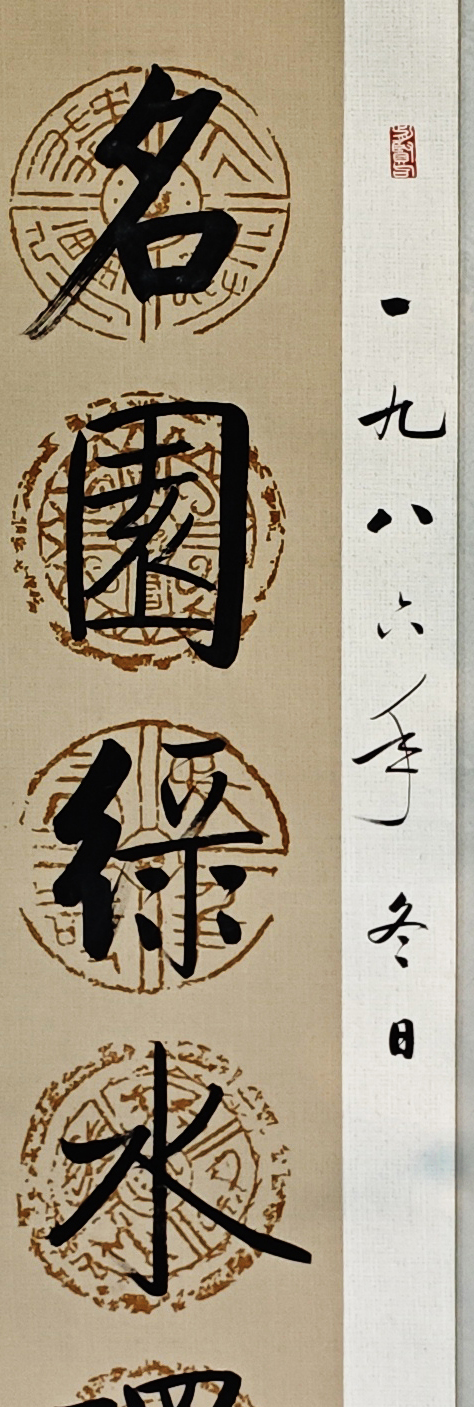 一九八六年冬日
名園綠水